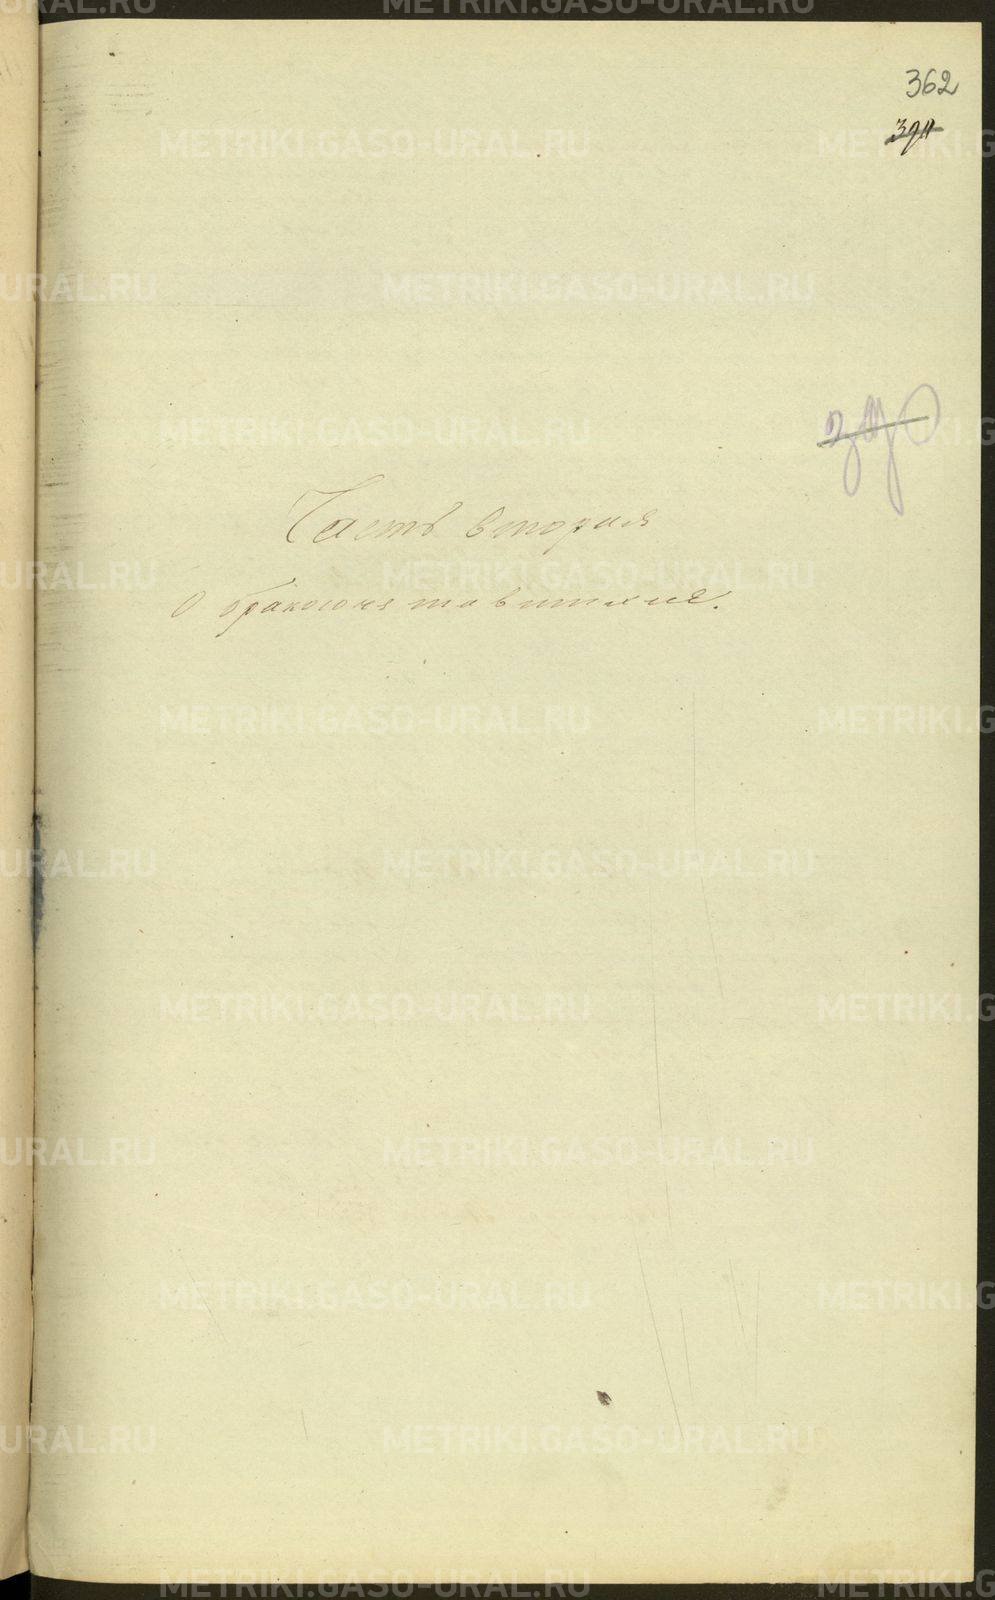 362
Часть вторая
О бракосочетавшихся.
METRIKI.GASO-URAL.RU